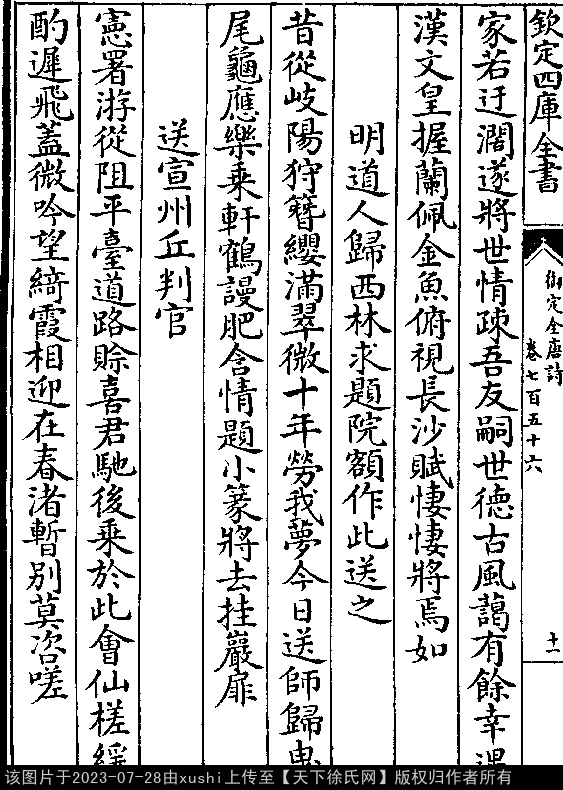 欽定四庫全書
御定全唐詩
卷七百五十六
十一
家若迂濶遂將世情疎吾友嗣世德古風藹有餘幸遇
漢文皇握蘭佩金魚俯視長沙賦悽悽將焉如
明道人歸西林求題院額作此送之
昔從岐陽狩簪纓滿翠微十年勞我夢今日送師歸曳
尾龜應樂乘軒鶴謾肥含情題小篆將去挂巖扉
送宣州丘判官
憲署游從阻平臺道路賒喜君馳後乘於此會仙槎緩
酌遲飛蓋微吟望綺霞相迎在春渚暫別莫咨嗟
该图片于2023-07-28由xushi上传至【天下徐氏网】版权归作者所有